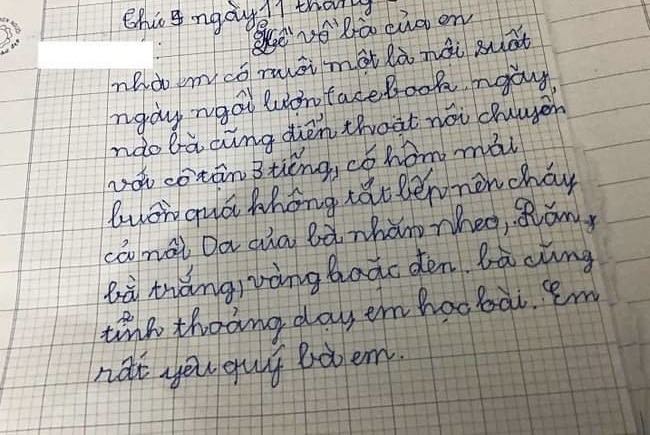 Thứ 5 ngày 11 tháng
Kể về bà của em
nhà em có nuôi một là nôi suốt
ngày ngồi lướn facebook. ngày
nào bà cũng điển thoăt nói chuyện
với cô tận 3 tiếng, có hôm mải
buôn quá không tắt bếp nên cháy
cả nồi Da của bà nhăn nheo, Răng
bà trắng, vàng hoặc đen. bà cũng
tỉnh thoảng dạy em học bài. Em
rất yêu quý bà em.